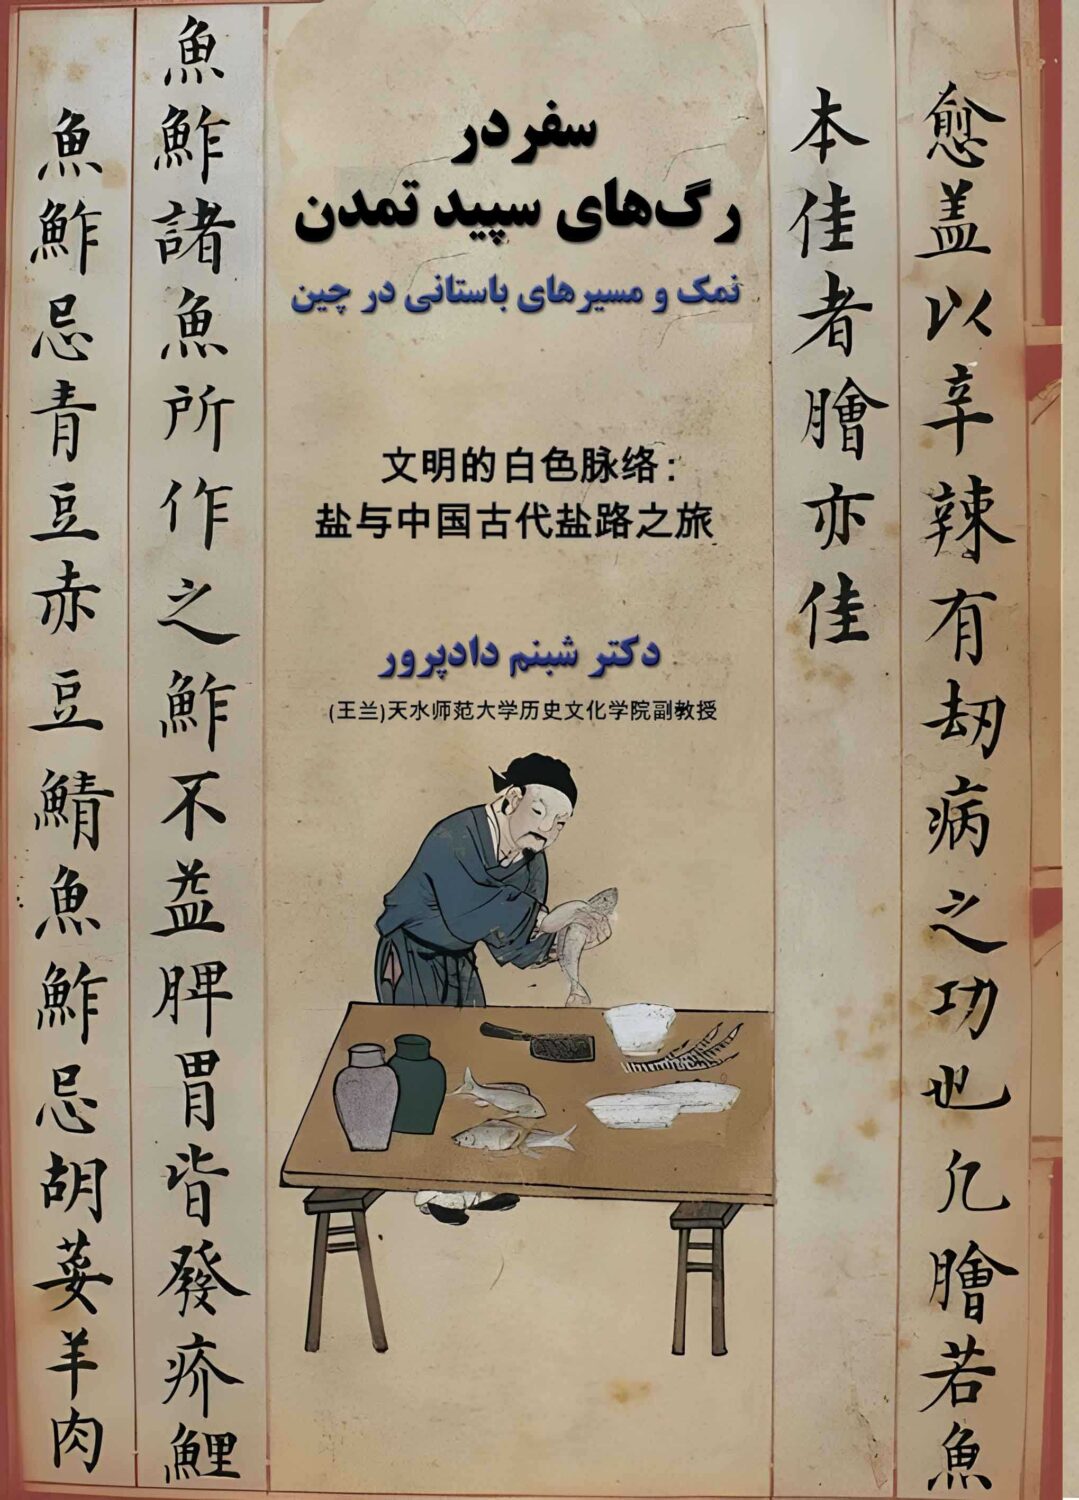 愈盖以辛辣有刼病之功也凡膾若魚
本佳者膾亦佳
سفر در
رگ‌های سپید تمدن
نمک و مسیرهای باستانی در چین
文明的白色脉络：
盐与中国古代盐路之旅
دکتر شبنم دادپرور
(王兰)天水师范大学历史文化学院副教授
魚鮓諸魚所作之鮓不益脾胃皆發疥鯉
魚鮓忌青豆赤豆鯖魚鮓忌胡荽羊肉